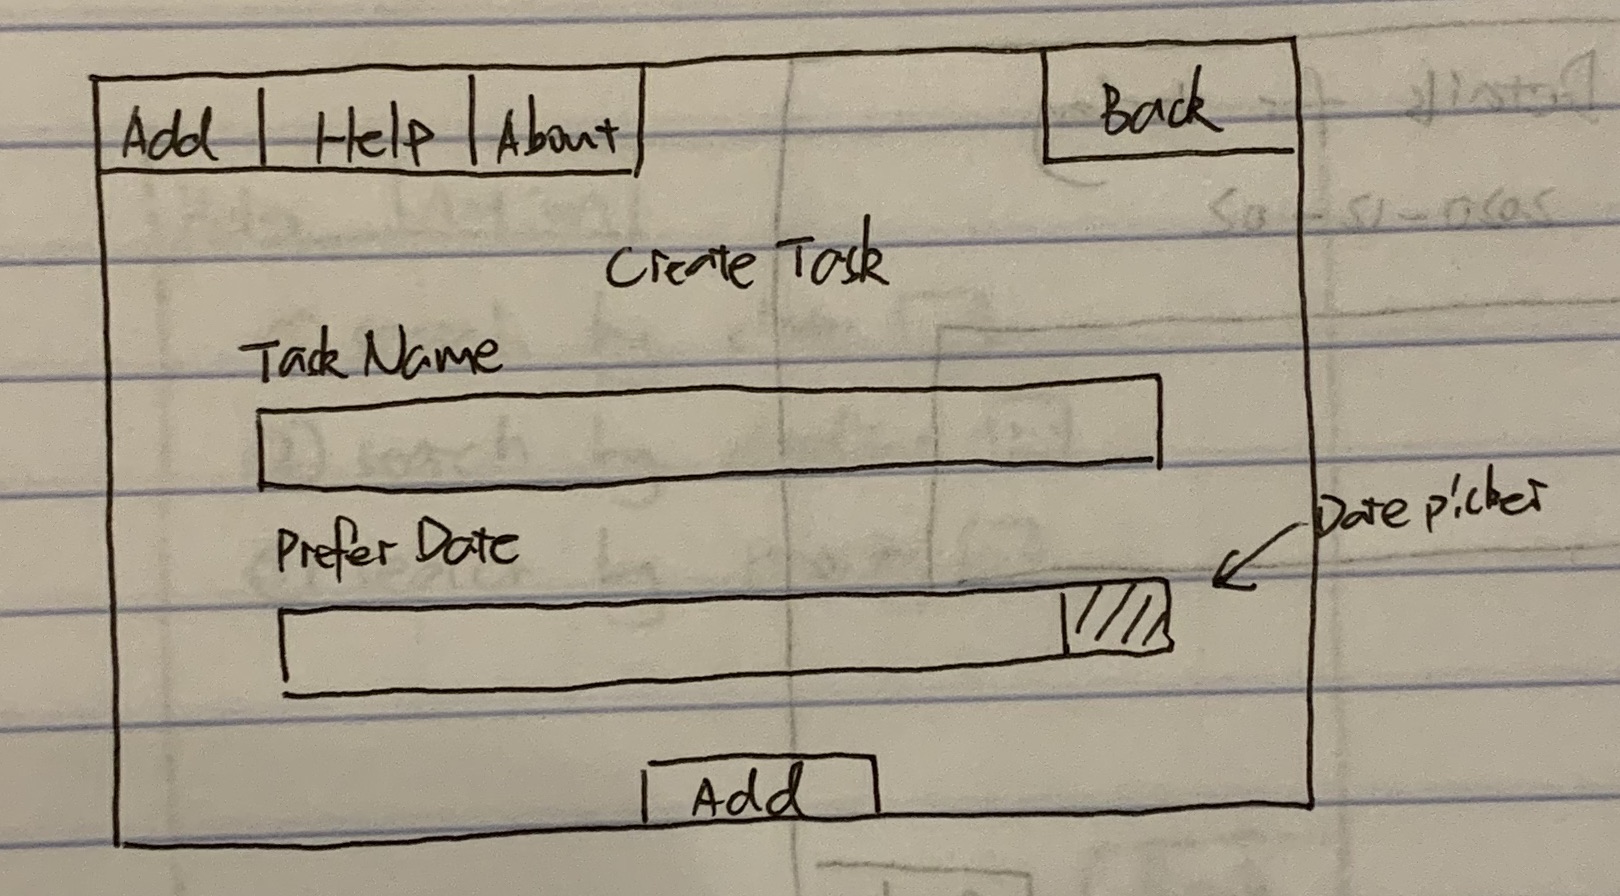 Add Help About Back
Create Task
Task Name
Prefer Date
Date picker
Add